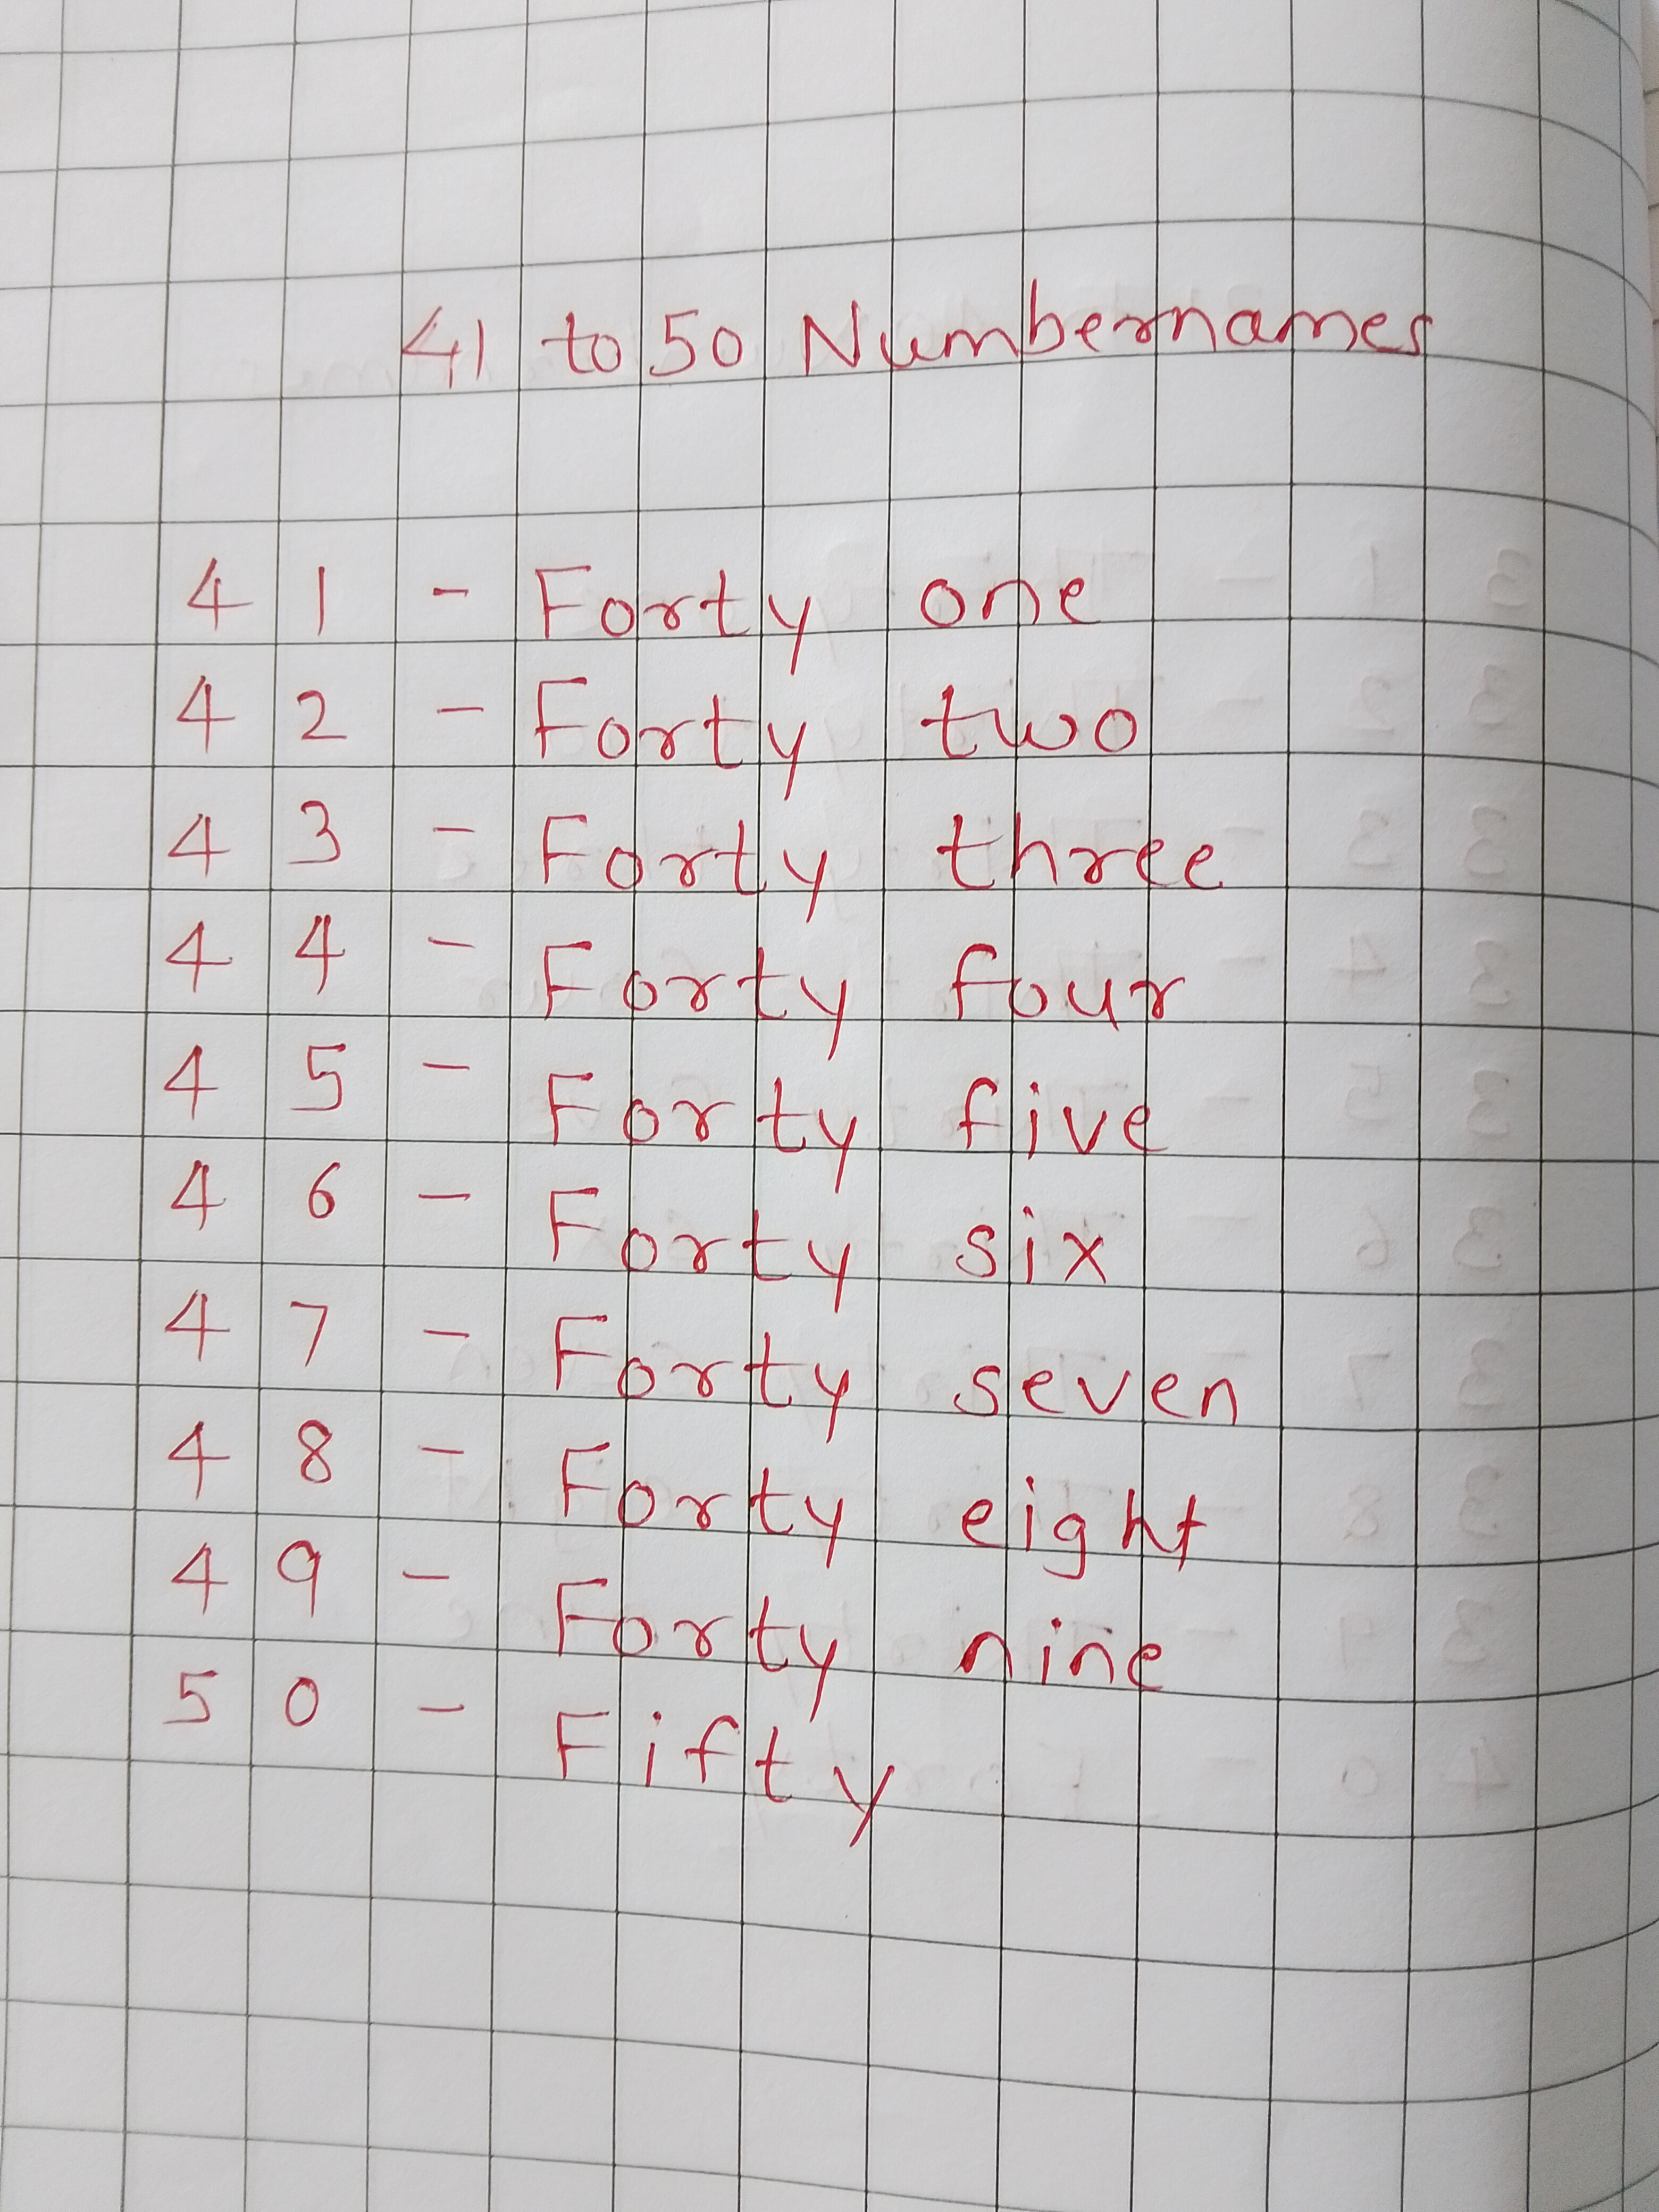 41 to 50 Numbernames
41 - Forty one
42 - Forty two
43 - Forty three
44 - Forty four
45 - Forty five
46 - Forty six
47 - Forty seven
48 - Forty eight
49 - Forty nine
50 - Fifty